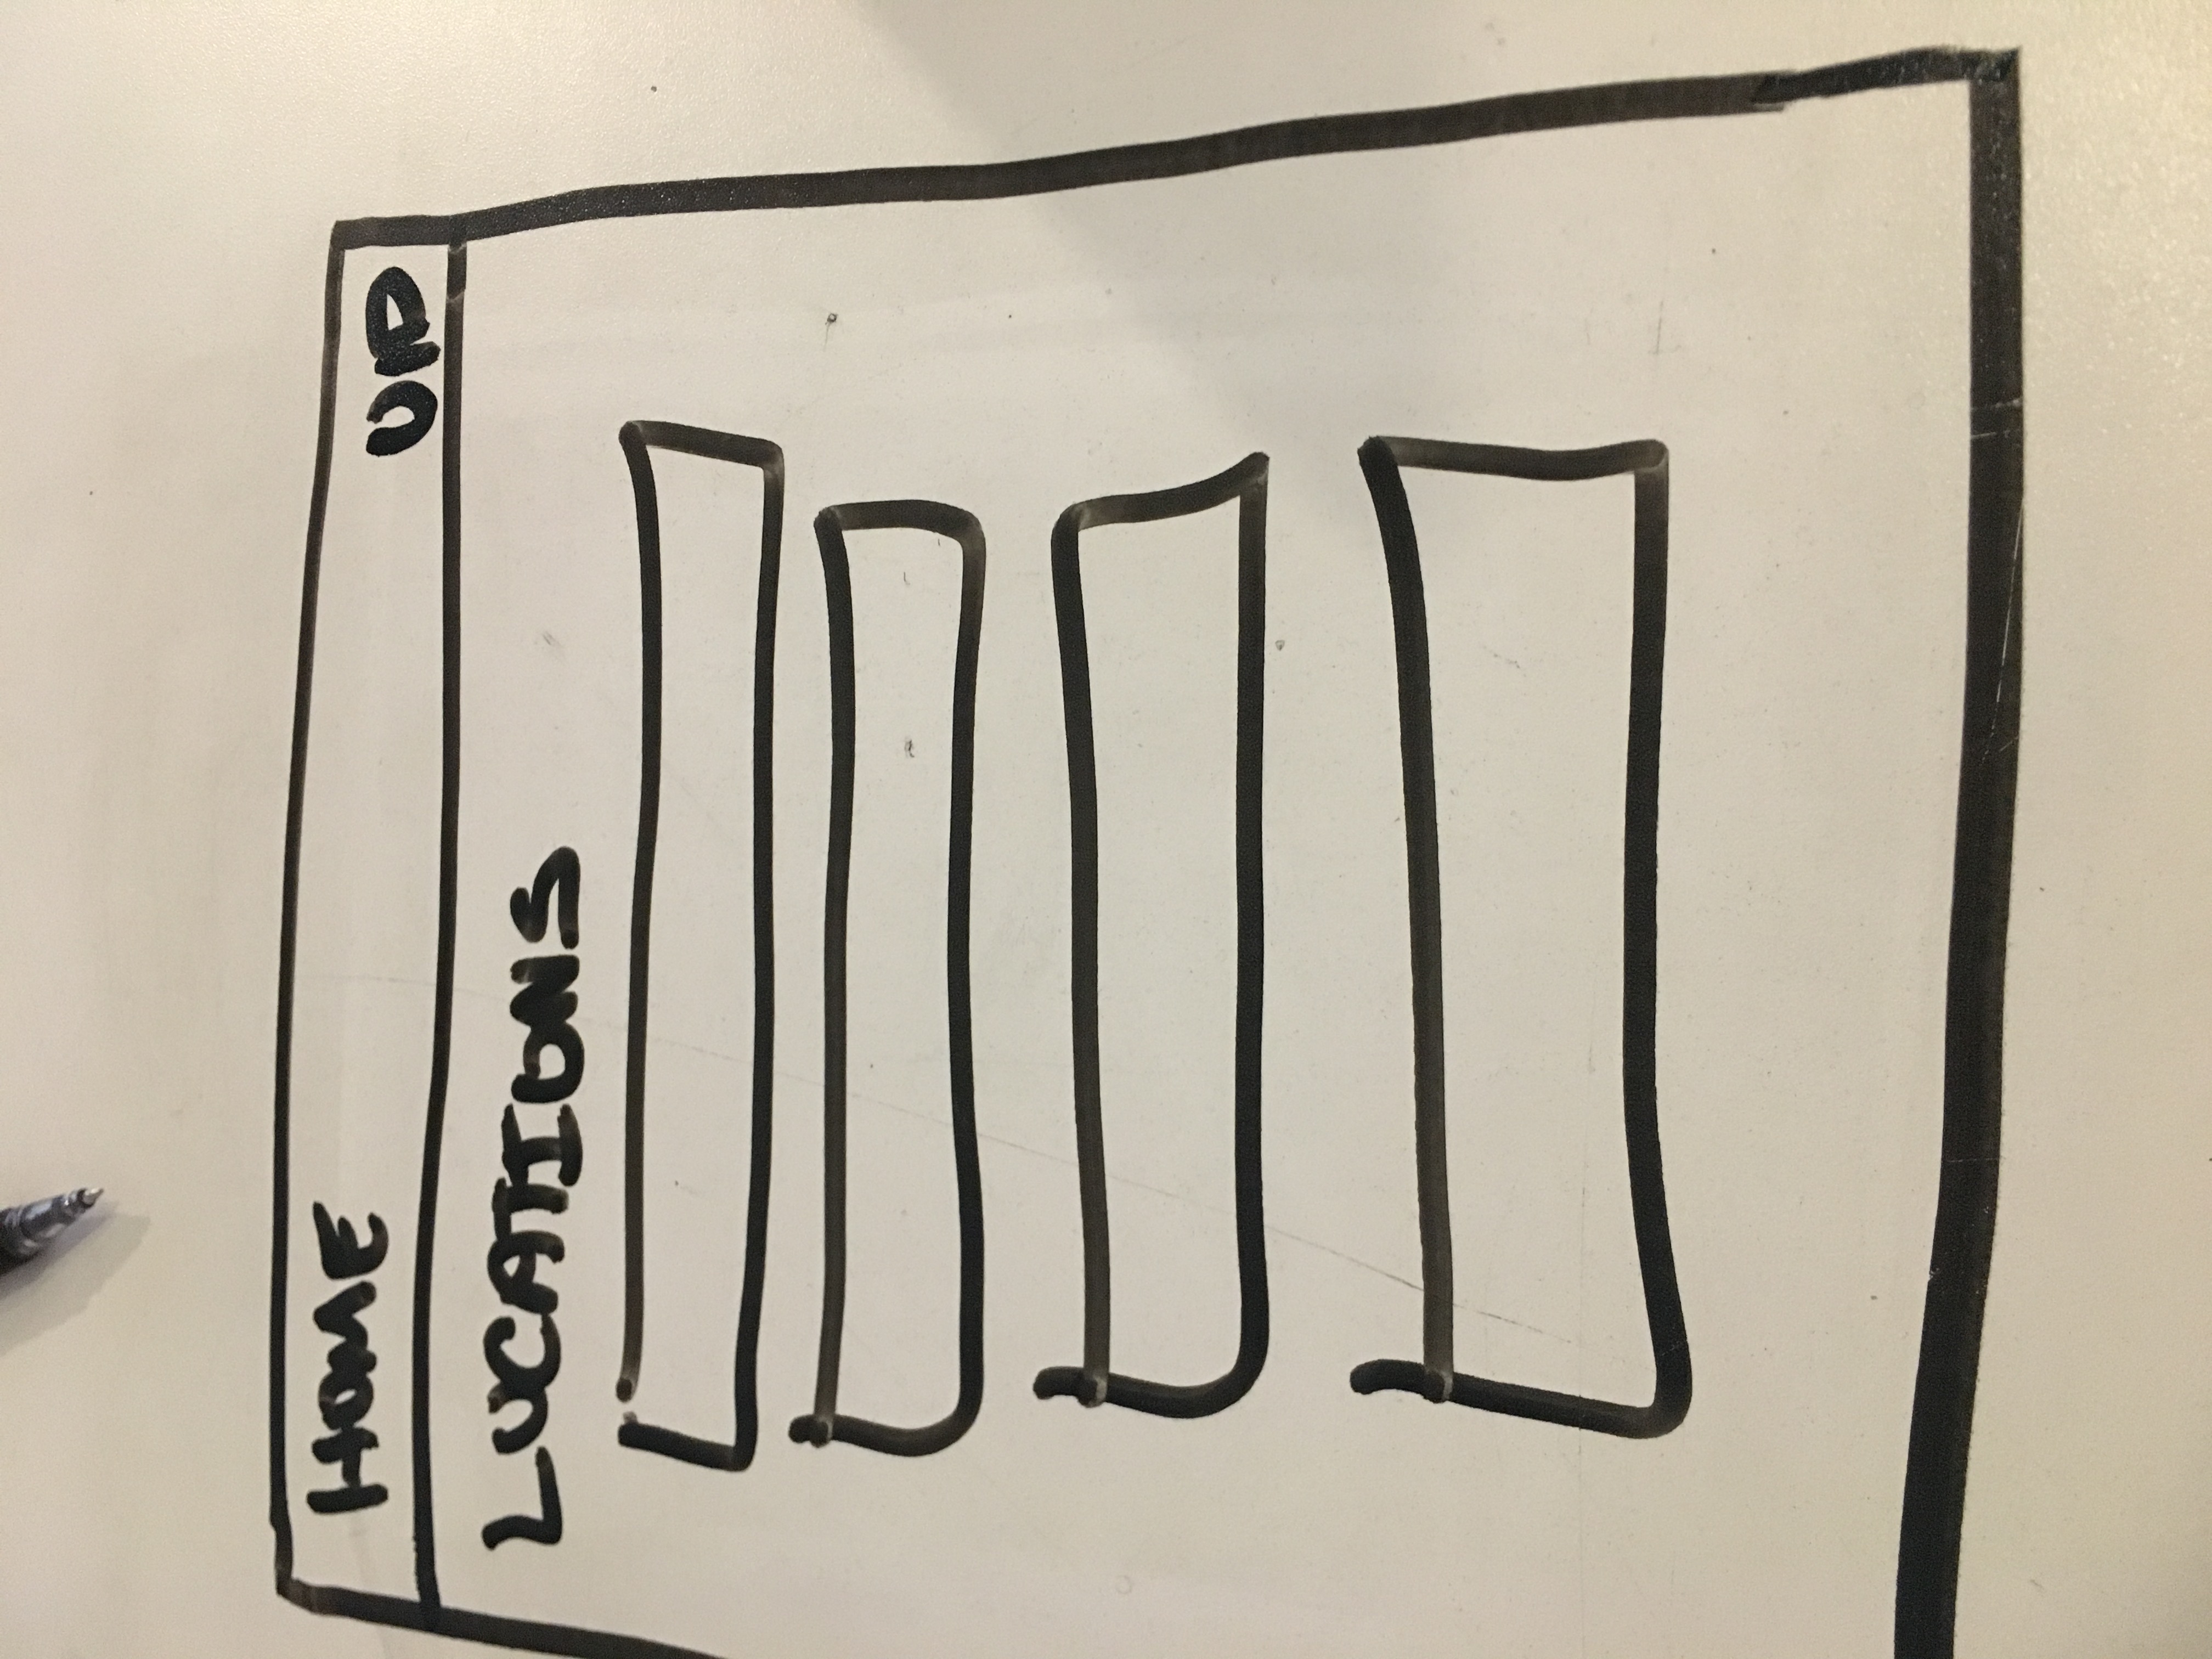 HOME
UID
LOCATIONS